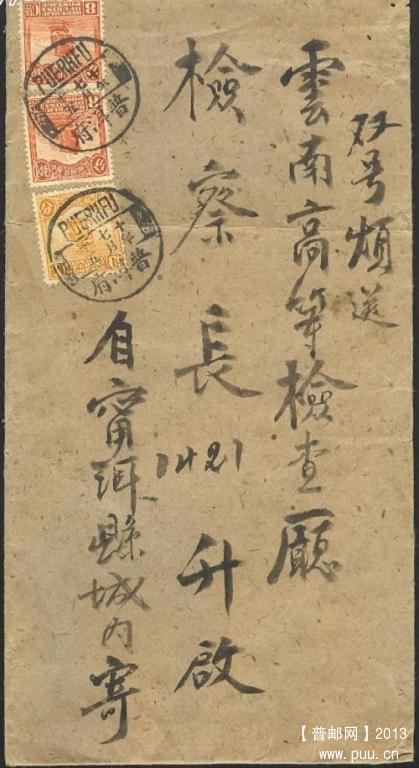 双号煩送
雲南高等檢查廳
檢察長 升啟
1421
自甯洱縣城内寄
PUERHFU
普洱府
PUERHFU
普洱府
8
【普邮网】2013
www.puu.cn